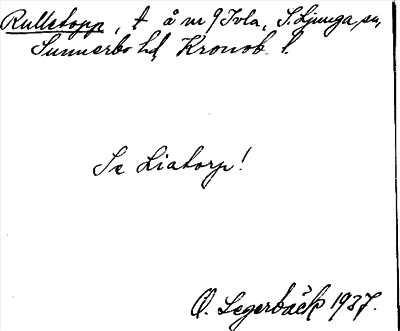 Rulletopp, t å nr 9 Ivla, S. Ljunga sn,
Sunnerbo hd, Kronob. l.
Se Liatorp!
O. Segerbäck 1937.